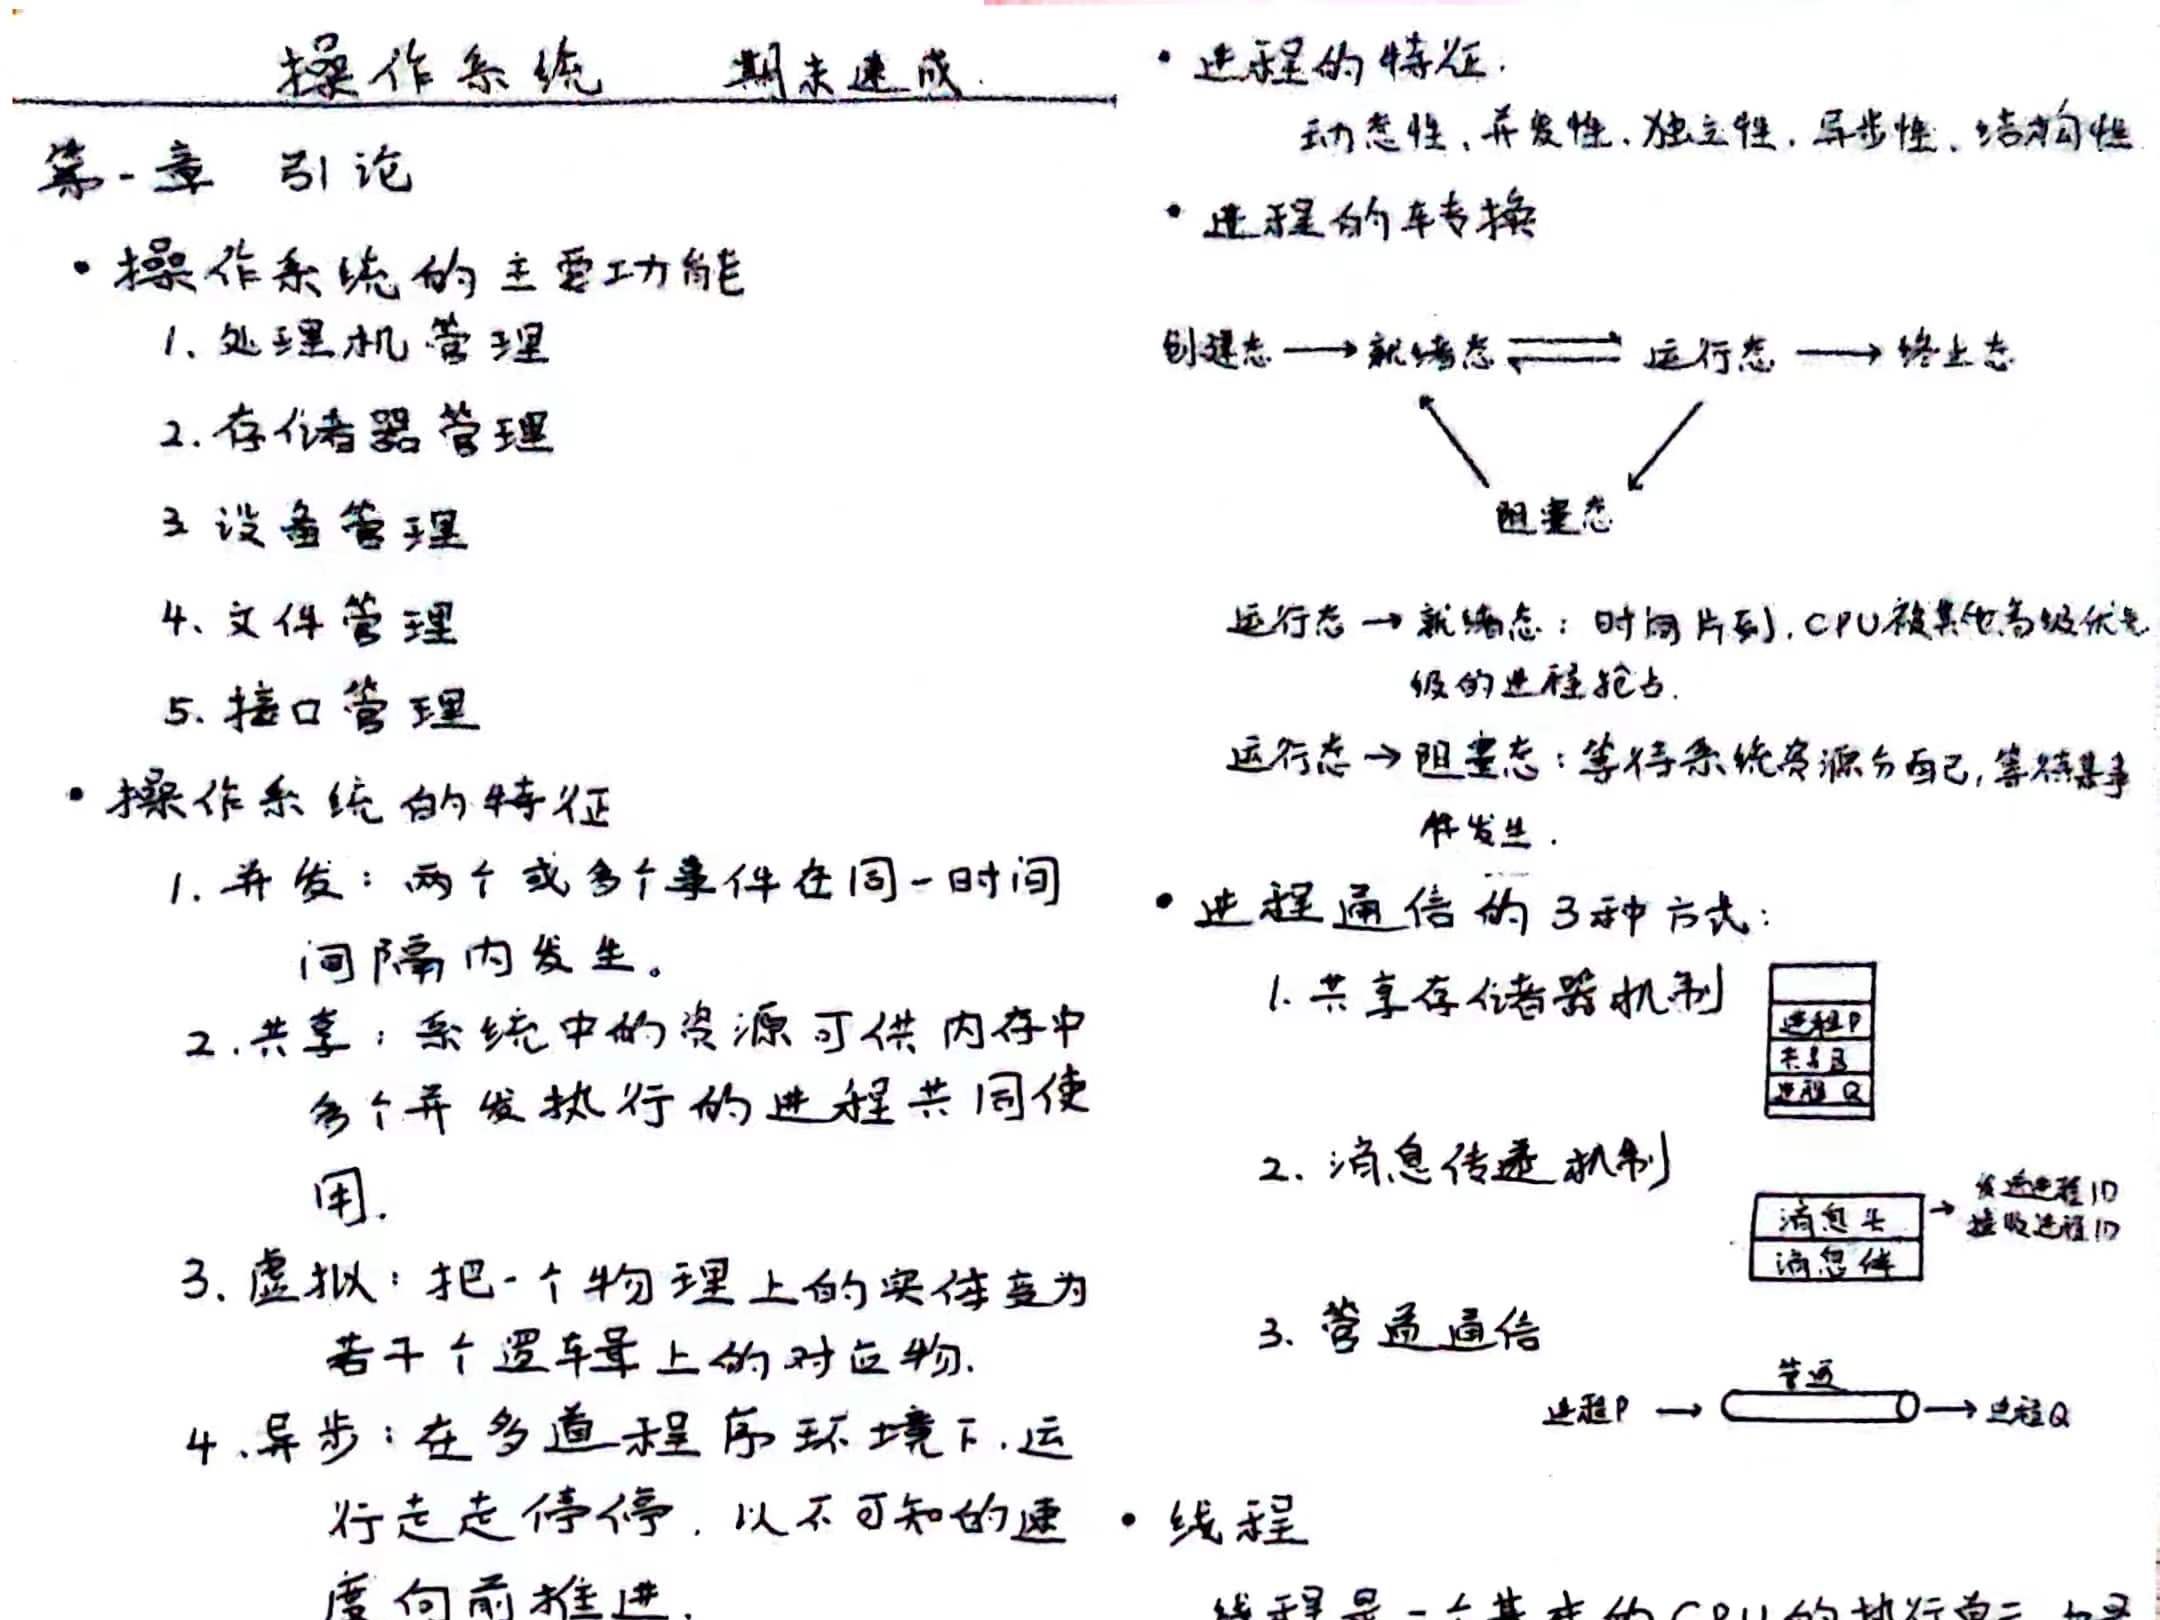 操作系统 期末速成.
第一章 引论
• 操作系统的主要功能
1、处理机管理
2.存储器管理
3 设备管理
4、文件管理
5、接口管理
• 操作系统的特征
1. 并发：两个或多个事件在同一时间
间隔内发生。
2.共享：系统中的资源可供内存中
多个并发执行的进程共同使
用.
3、虚拟：把一个物理上的实体变为
若干个逻辑上的对应物.
4.异步：在多道程序环境下.运
行走走停停，以不可知的速
度向前推进.
• 进程的特征.
动态性、并发性、独立性、异步性、结构性
• 进程的转换
创建态 → 就绪态 ⇌ 运行态 → 终止态
阻塞态
运行态 → 就绪态：时间片到，CPU被其他高级优先
级的进程抢占.
运行态 → 阻塞态：等待系统资源分配，等待某事
件发生.
• 进程通信的3种方式：
1. 共享存储器机制
进程P
共享区
进程Q
2. 消息传递机制
消息头 → 发送进程ID
接收进程ID
消息体
3. 管道通信
管道
进程P → → 进程Q
• 线程
线程是一个基本的CPU的执行单元